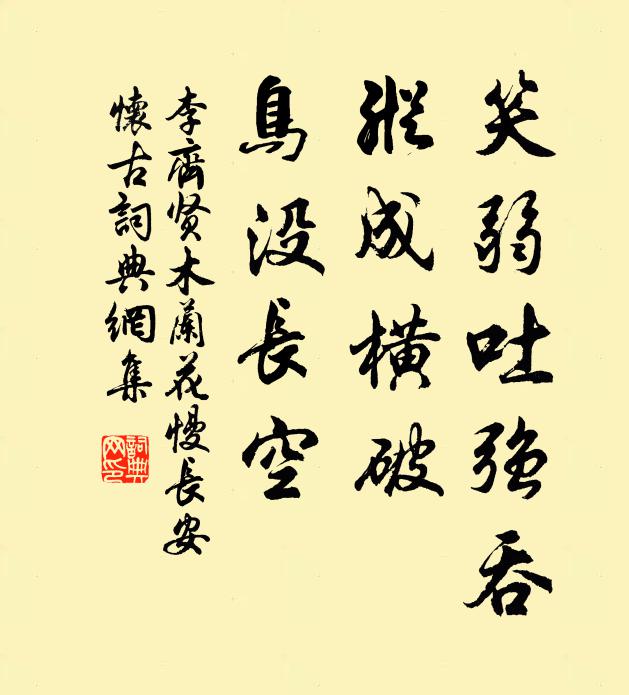 笑弱吐強吞
縱成橫破
鳥没長空
李齊賢木蘭花慢長安
懷古詞典網集
詞典網印